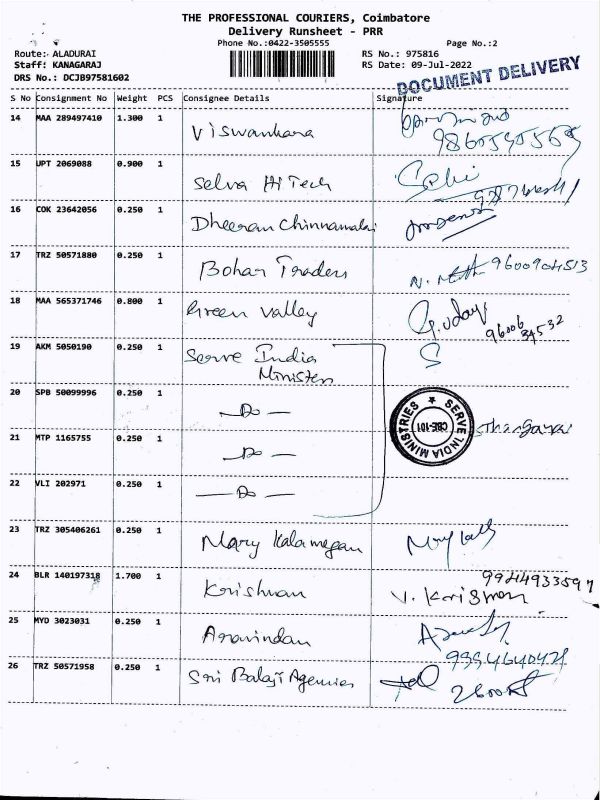 THE PROFESSIONAL COURIERS, Coimbatore
Delivery Runsheet - PRR
Phone No.:0422-3505555 Page No.:2
Route:- ALADURAI RS No.: 975816
Staff: KANAGARAJ RS Date: 09-Jul-2022
DRS No.: DCJB97581602
DOCUMENT DELIVERY
S No Consignment No Weight PCS Consignee Details Signature
14 MAA 289497410 1.300 1
Viswanhara
15 UPT 2069088 0.900 1
Selva Hi Tech
16 COK 23642056 0.250 1
Dheeran Chinnamalai
17 TRZ 50571880 0.250 1
Bohar Traders 9600904513
18 MAA 565371746 0.800 1
Green Valley G.Uday
96006 34532
19 AKM 5050190 0.250 1
Serve India S
Ministers
20 SPB 50099996 0.250 1
— Do —
SERVE INDIA MINISTRIES
CBE-101
21 MTP 1165755 0.250 1
— Do —
22 VLI 202971 0.250 1
— Do —
23 TRZ 305406261 0.250 1
Mary Kalamegan
24 BLR 140197318 1.700 1
9944933597
Krishnan V. Krisnan
25 MYD 3023031 0.250 1
Aravindan
26 TRZ 50571958 0.250 1
Sri Balaji Agencies